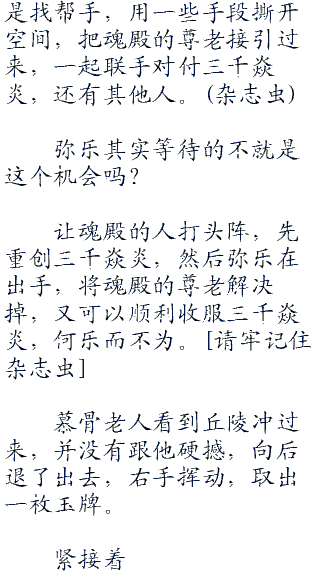 是找帮手，用一些手段撕开
空间，把魂殿的尊老接引过
来，一起联手对付三千焱
炎，还有其他人。(杂志虫)
弥乐其实等待的不就是
这个机会吗？
让魂殿的人打头阵，先
重创三千焱炎，然后弥乐在
出手，将魂殿的尊老解决
掉，又可以顺利收服三千焱
炎，何乐而不为。[请牢记住
杂志虫]
慕骨老人看到丘陵冲过
来，并没有跟他硬撼，向后
退了出去，右手挥动，取出
一枚玉牌。
紧接着